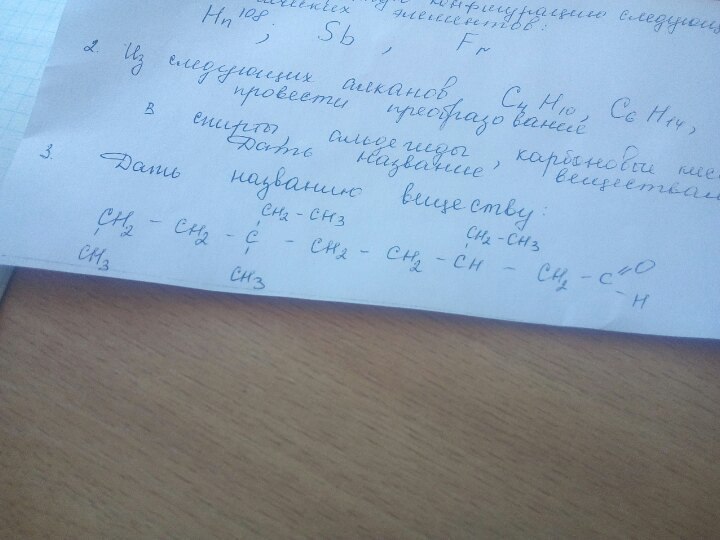 конфигурацию следующ
элементов:
Hn¹⁰⁸, Sb, Fr
2. Из следующих алканов C₄H₁₀, C₆H₁₄,
провести преобразование
в спирты, альдегиды, карбоновые кис
Дать название веществам
3. Дать названию веществу:
CH₂-CH₃ CH₂-CH₃
CH₂ - CH₂ - C - CH₂ - CH₂ - CH - CH₂ - C=O
CH₃ CH₃ - H